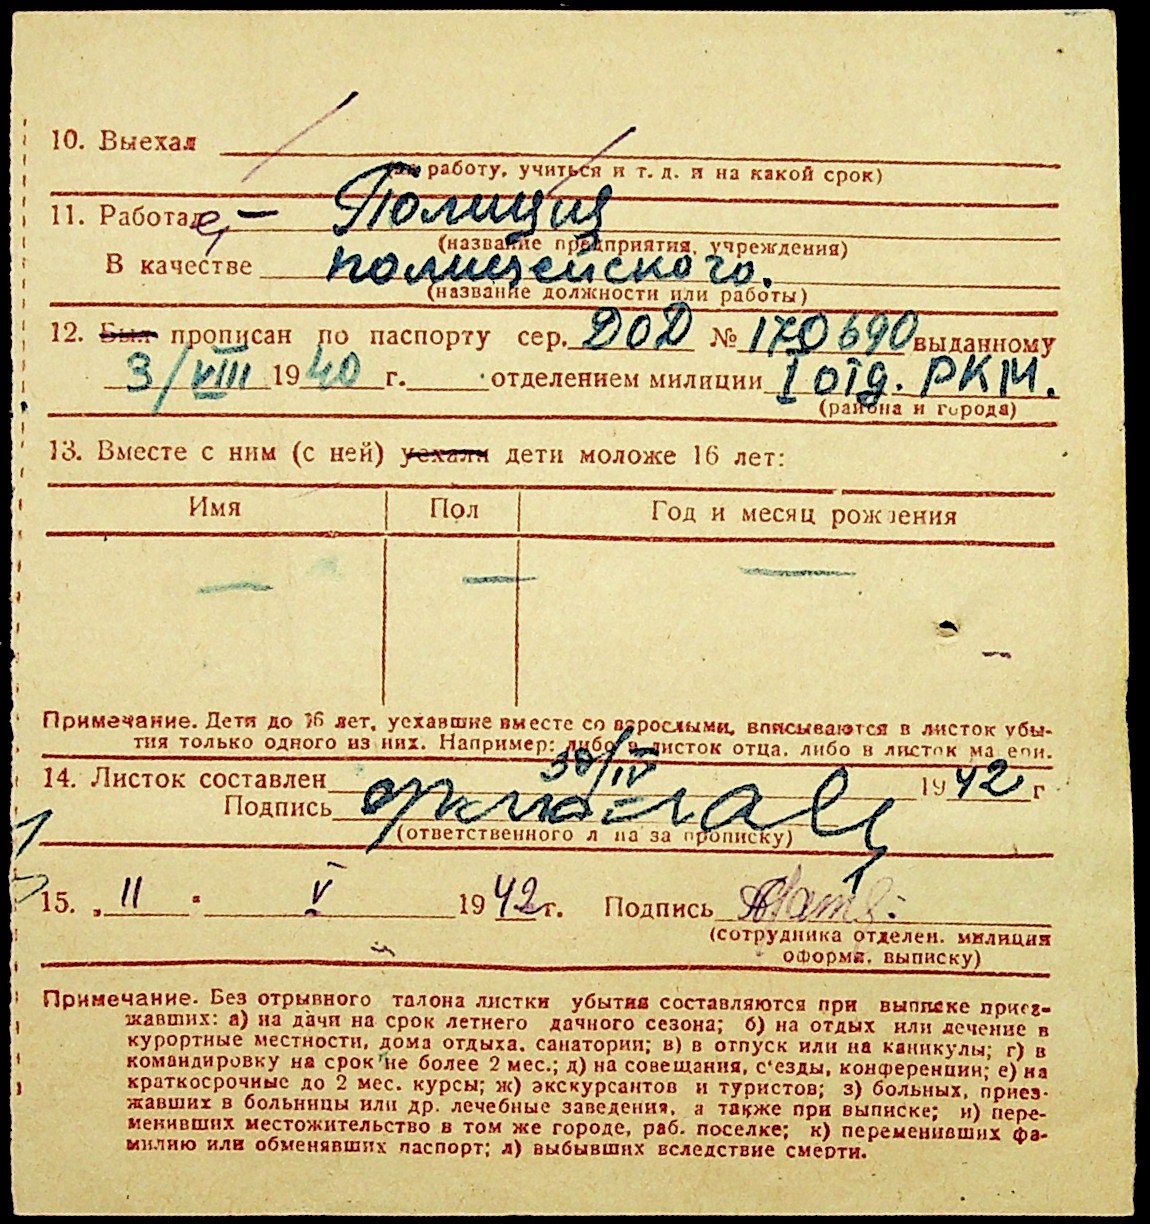 10. Выехал
(на работу, учиться и т. д. и на какой срок)
11. Работает — Полиция
(название предприятия, учреждения)
В качестве полицейского.
(название должности или работы)
12. Был прописан по паспорту сер. ДОД № 170690 выданному
3/VIII 1940 г. отделением милиции I отд. РКМ.
(района и города)
13. Вместе с ним (с ней) уехали дети моложе 16 лет:
Имя Пол Год и месяц рождения
— — —
Примечание. Дети до 16 лет, уехавшие вместе со взрослыми, вписываются в листок убы-
тия только одного из них. Например: либо в листок отца, либо в листок матери.
14. Листок составлен 30/IV 1942 г
Подпись
(ответственного лица за прописку)
15. „11" V 1942 г. Подпись
(сотрудника отделен. милиции
оформ. выписку)
Примечание. Без отрывного талона листки убытия составляются при выписке приез-
жавших: а) на дачи на срок летнего дачного сезона; б) на отдых или лечение в
курортные местности, дома отдыха, санатории; в) в отпуск или на каникулы; г) в
командировку на срок не более 2 мес.; д) на совещания, с'езды, конференции; е) на
краткосрочные до 2 мес. курсы; ж) экскурсантов и туристов; з) больных, приез-
жавших в больницы или др. лечебные заведения, а также при выписке; и) пере-
менивших местожительство в том же городе, раб. поселке; к) переменивших фа-
милию или обменявших паспорт; л) выбывших вследствие смерти.